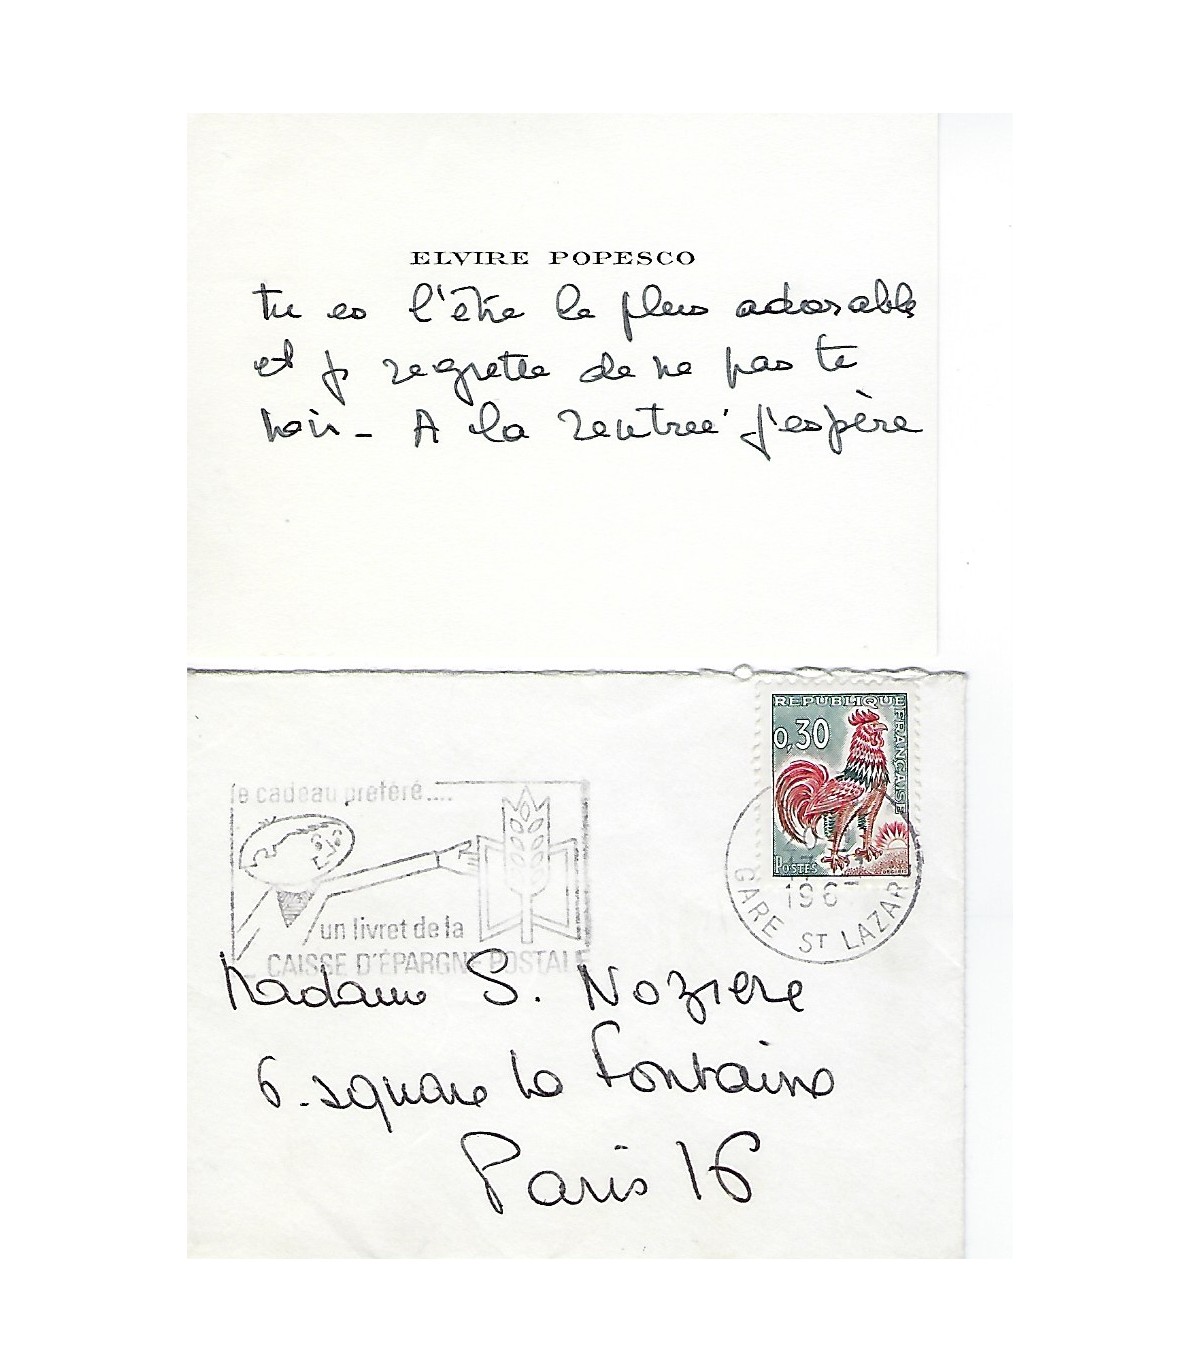 ELVIRE POPESCO
tu es l'être le plus adorable
et je regrette de ne pas te
voir - A la rentrée j'espère
REPUBLIQUE FRANÇAISE
0,30
POSTES
le cadeau préféré....
un livret de la
CAISSE D'ÉPARGNE POSTALE
1967
GARE ST LAZARE
Madame S. NOZIERE
6 - square La Fontaine
Paris 16